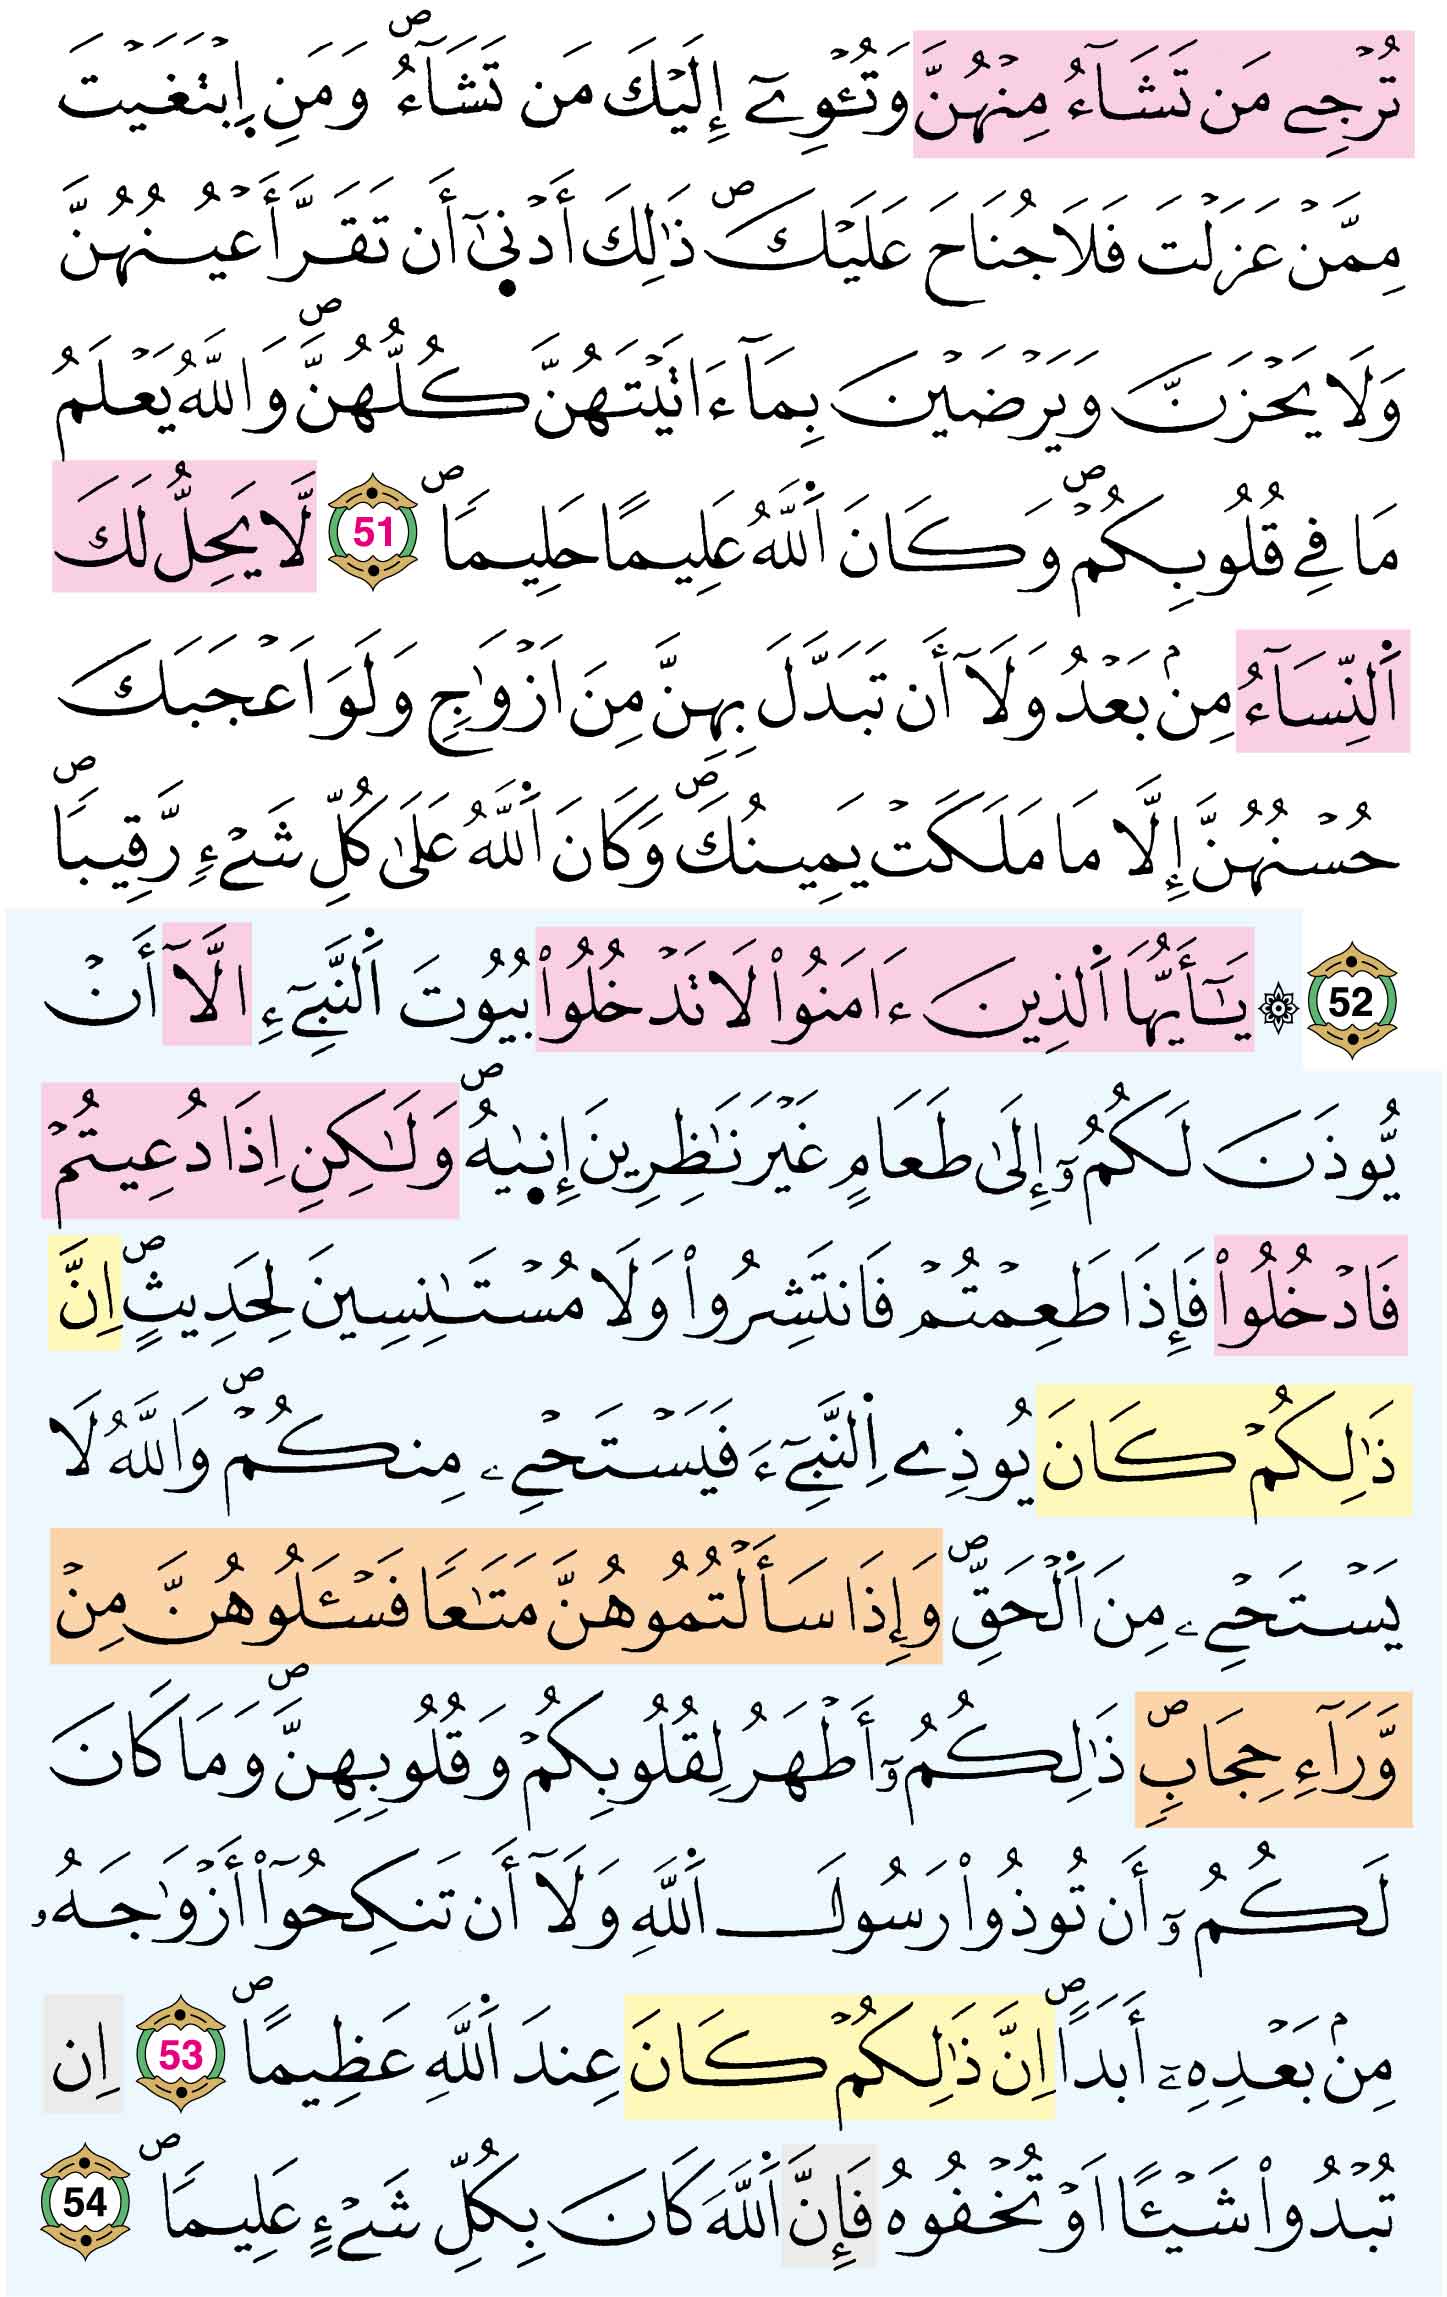 تُرْجِے مَن تَشَآءُ مِنْهُنَّ وَتُـْٔوِےٓ إِلَيْكَ مَن تَشَآءُۖ وَمَنِ اِ۪بْتَغَيْتَ
مِمَّنْ عَزَلْتَ فَلَا جُنَاحَ عَلَيْكَۖ ذَٰلِكَ أَدْن۪يٰٓ أَن تَقَرَّ أَعْيُنُهُنَّ
وَلَا يَحْزَنَّ وَيَرْضَيْنَ بِمَآ ءَاتَيْتَهُنَّ كُلُّهُنَّۖ وَاللَّهُ يَعْلَمُ
مَا فِے قُلُوبِكُمْۖ وَكَانَ اَ۬للَّهُ عَلِيمًا حَلِيمًاۖ 51 لَّا يَحِلُّ لَكَ
اَ۬لنِّسَآءُ مِنۢ بَعْدُ وَلَآ أَن تَبَدَّلَ بِهِنَّ مِنَ اَزْوَٰجٍ وَلَوَ اَعْجَبَكَ
حُسْنُهُنَّ إِلَّا مَا مَلَكَتْ يَمِينُكَۖ وَكَانَ اَ۬للَّهُ عَلَىٰ كُلِّ شَےْءٍ رَّقِيبًاۖ
52 ۞ يَٰٓأَيُّهَا اَ۬لذِينَ ءَامَنُوا۟ لَا تَدْخُلُوا۟ بُيُوتَ اَ۬لنَّبِےٓءِ الَّآ أَنْ
يُّوذَنَ لَكُمُۥٓ إِلَىٰ طَعَامٍ غَيْرَ نَٰظِرِينَ إِن۪يٰهُۖ وَلَٰكِنِ اِذَا دُعِيتُمْ
فَادْخُلُوا۟ فَإِذَا طَعِمْتُمْ فَانتَشِرُوا۟ وَلَا مُسْتَـٰنِسِينَ لِحَدِيثٍۖ اِنَّ
ذَٰلِكُمْ كَانَ يُوذِے اِ۬لنَّبِےٓءَ فَيَسْتَحْےِۦ مِنكُمْۖ وَاللَّهُ لَا
يَسْتَحْےِۦ مِنَ اَ۬لْحَقِّۖ وَإِذَا سَأَلْتُمُوهُنَّ مَتَٰعًا فَسْـَٔلُوهُنَّ مِنْ
وَّرَآءِ حِجَابٍۖ ذَٰلِكُمُۥٓ أَطْهَرُ لِقُلُوبِكُمْ وَقُلُوبِهِنَّۖ وَمَا كَانَ
لَكُمُۥٓ أَن تُوذُوا۟ رَسُولَ اَ۬للَّهِ وَلَآ أَن تَنكِحُوٓا۟ أَزْوَٰجَهُۥ
مِنۢ بَعْدِهِۦٓ أَبَدًاۖ اِنَّ ذَٰلِكُمْ كَانَ عِندَ اَ۬للَّهِ عَظِيمًاۖ 53 اِن
تُبْدُوا۟ شَيْـًٔا اَوْ تُخْفُوهُ فَإِنَّ اَ۬للَّهَ كَانَ بِكُلِّ شَےْءٍ عَلِيمًاۖ 54